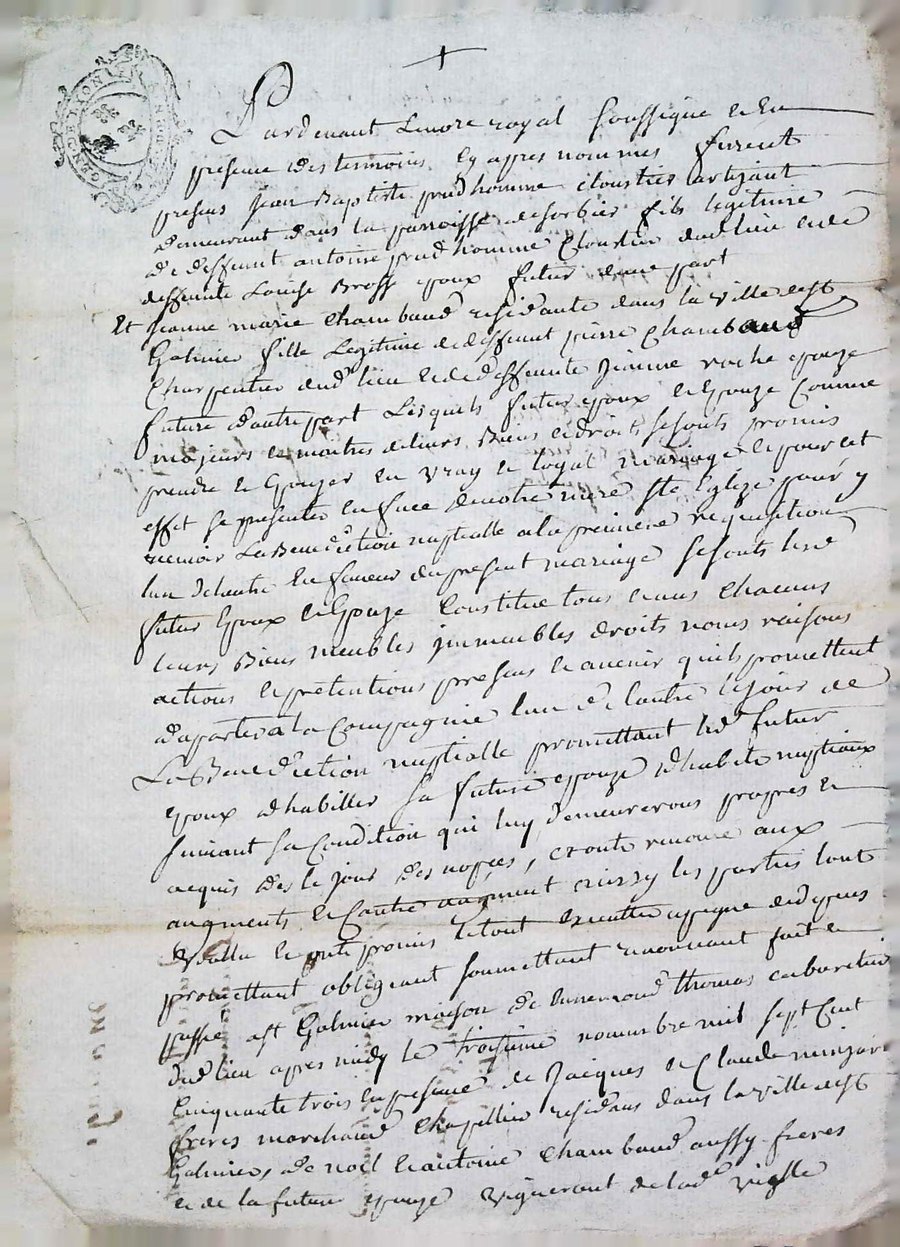 GEN. DE LYON
Pardevant Le nore royal soussigné et en
presence des temoins cy apres nommés furent
presens Jean Baptiste prudhomme cloustier artizant
demeurant dans la parroisse de sorbier fils legitime
de deffunt antoine prudhomme cloustier dud lieu et de
deffunte Louise Bross epoux futur dune part
Et jeanne marie Chambaud residante dans la ville de st
Galmier fille Legitime de deffunt pierre Chambaud
Charpentier dud lieu et de deffunte Jeanne roche epouze
future dautre part Lesquels futur epoux et Epouze comme
majeurs et maitres de leurs Biens et droits se sont promis
prendre et Epouzer en vray et loyal mariage et pour cet
effet se presenter en face de notre mere ste Eglize pour y
recevoir La Benediction nuptialle a la premiere requisition
lun de lautre En faveur du present mariage se sont lesd
futur Epoux et Epouze Constitué tous et uns chacuns
leurs Biens meubles immeubles droits noms raisons
actions et pretentions presens et avenir quils promettent
daporter a la Compagnie lun de lautre le jour de
La Benediction nuptialle promettant led futur
epoux dhabiller sa future epouze dhabits nuptiaux
suivant sa Condition qui luy demeureront propres et
acquis des le jour des nopces, et ont renoncé aux
augments et Contre augment ainsy les parties lont
voullu et ont promis le tout executter a peine de depens
promettant obligeant soumettant renonçant fait et
passé a st Galmier maison de thomas cabaretier
dud lieu apres midy le troisieme novembre mil sept Cent
Cinquante trois En presence de Jacques et Claude
freres marchand Chapellier residens dans la ville de st
Galmier, de noel et antoine Chambaud aussy freres
et de la future epouze vigneront de lad ville